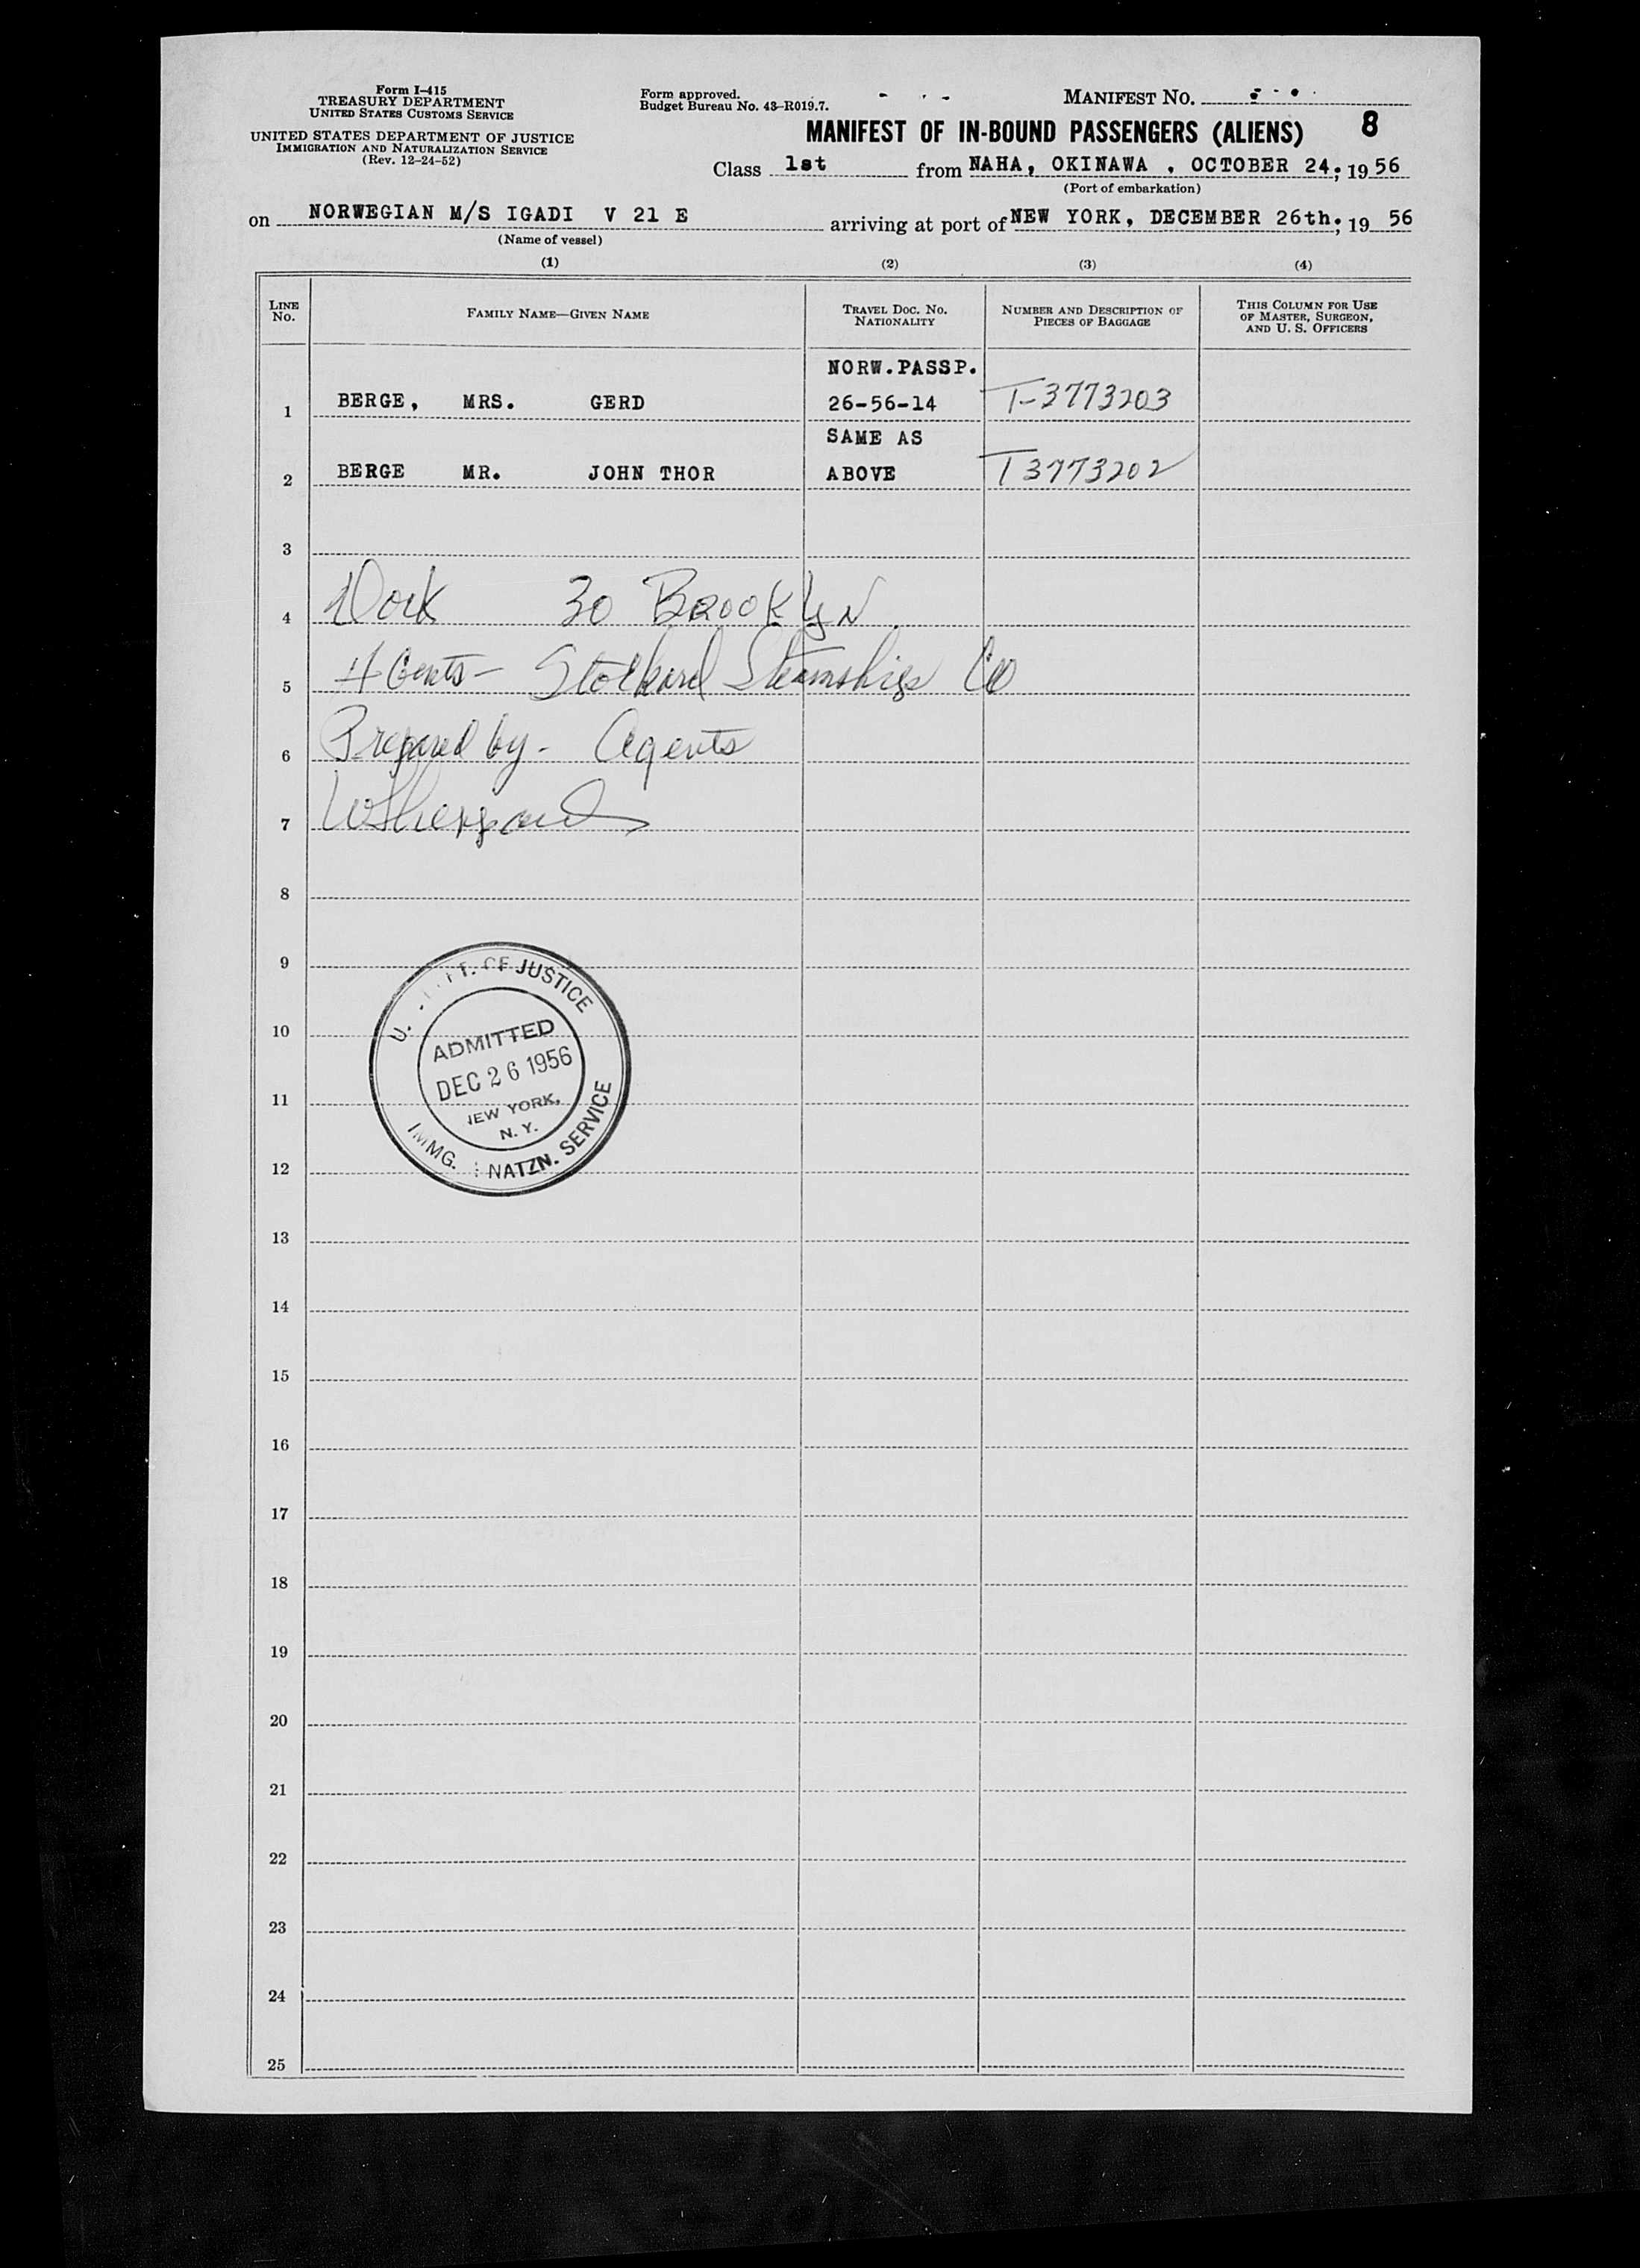 Form I-415
TREASURY DEPARTMENT
UNITED STATES CUSTOMS SERVICE
UNITED STATES DEPARTMENT OF JUSTICE
IMMIGRATION AND NATURALIZATION SERVICE
(Rev. 12-24-52)
Form approved.
Budget Bureau No. 43-R019.7.
MANIFEST NO.
MANIFEST OF IN-BOUND PASSENGERS (ALIENS) 8
Class 1st from NAHA, OKINAWA , OCTOBER 24, 1956
(Port of embarkation)
on NORWEGIAN M/S IGADI V 21 E arriving at port of NEW YORK, DECEMBER 26th, 1956
(Name of vessel)
(1) (2) (3) (4)
LINE No. FAMILY NAME—GIVEN NAME TRAVEL DOC. NO. NATIONALITY NUMBER AND DESCRIPTION OF PIECES OF BAGGAGE THIS COLUMN FOR USE OF MASTER, SURGEON, AND U. S. OFFICERS
NORW.PASSP.
1 BERGE, MRS. GERD 26-56-14 T-3773203
SAME AS
2 BERGE MR. JOHN THOR ABOVE T3773202
3
4 Dock 30 BROOKLYN
5 Agents - Stockard Steamships Co
6 Prepared by - Agents
7
8
9
10
11
12
13
14
15
16
17
18
19
20
21
22
23
24
25
U. T. OF JUSTICE
ADMITTED
DEC 26 1956
NEW YORK,
N. Y.
IMMG. NATZN. SERVICE